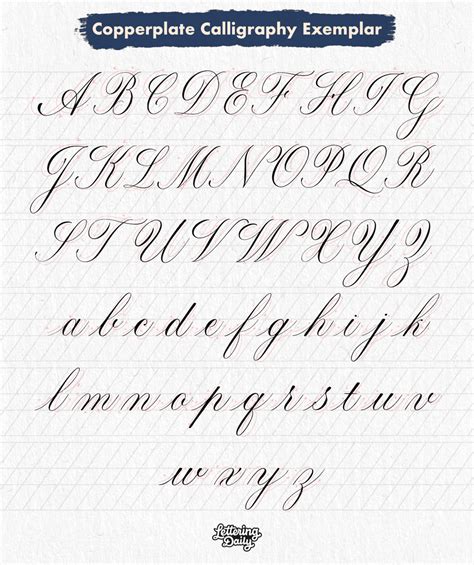 Copperplate Calligraphy Exemplar
A B C D E F H I G
J K L M N O P Q R
S T U V W X Y Z
a b c d e f g h i j k
l m n o p q r s t u v
w x y z
Lettering
Daily